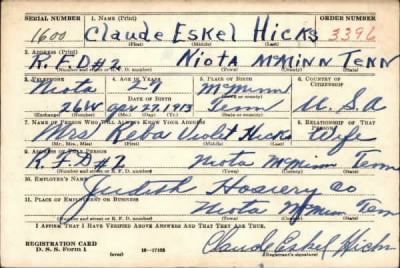 SERIAL NUMBER 1. NAME (Print) ORDER NUMBER
1600 Claude Eskel Hicks 3396
(First) (Middle) (Last)
2. ADDRESS (Print)
R.F.D #2 Niota McMinn Tenn
(Number and street or R. F. D. number) (Town) (County) (State)
3. TELEPHONE 4. AGE IN YEARS 5. PLACE OF BIRTH 6. COUNTRY OF CITIZENSHIP
Niota 27 McMinn
DATE OF BIRTH (Town or county)
26W 27, 1913 Tenn U.S.A
(State or country)
7. NAME OF PERSON WHO WILL ALWAYS KNOW YOUR ADDRESS 8. RELATIONSHIP OF THAT PERSON
Mrs Reba Violet Hicks Wife
(Mr., Mrs., Miss) (First) (Middle) (Last)
9. ADDRESS OF THAT PERSON
R.F.D #2 Niota McMinn Tenn
(Number and street or R. F. D. number) (Town) (County) (State)
10. EMPLOYER'S NAME
Judish Hosiery Co
11. PLACE OF EMPLOYMENT OR BUSINESS
Niota McMinn Tenn
(Number and street or R. F. D. number) (Town) (County) (State)
I AFFIRM THAT I HAVE VERIFIED ABOVE ANSWERS AND THAT THEY ARE TRUE.
REGISTRATION CARD
D. S. S. Form 1 (over) Claude Eskel Hicks
(Registrant's signature)